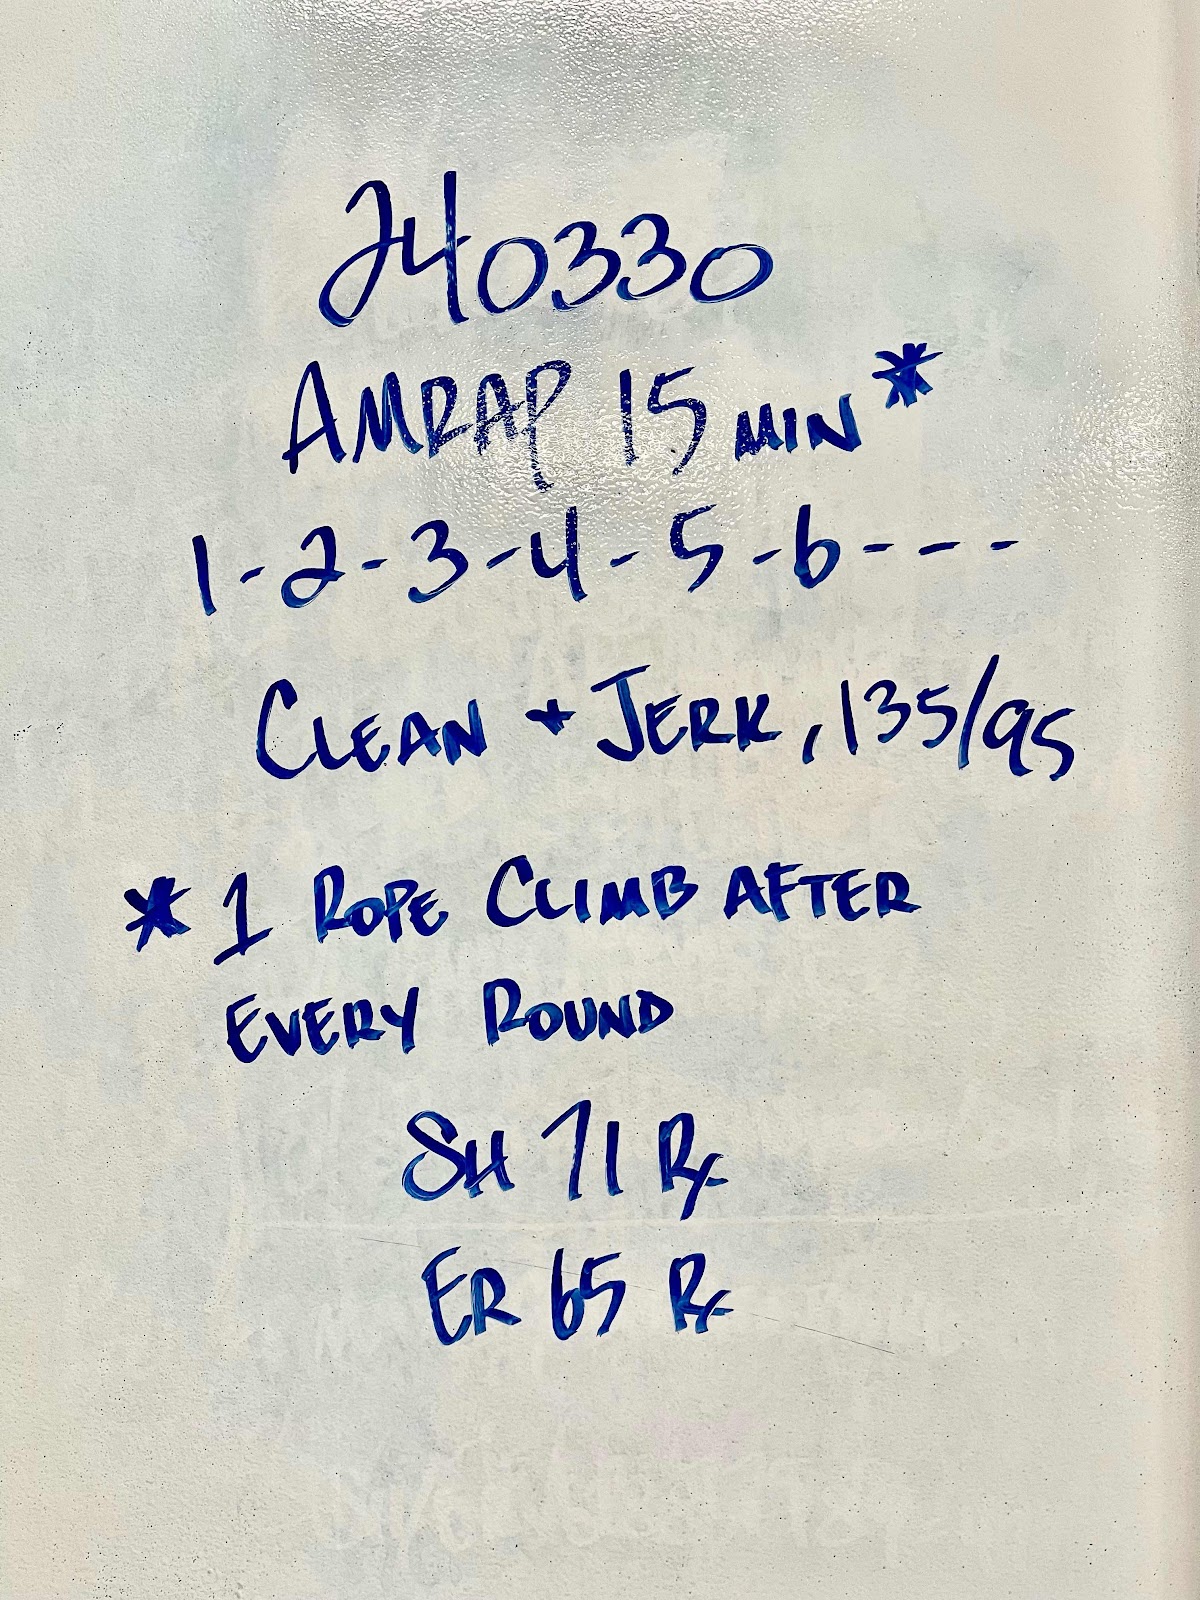 240330
AMRAP 15 MIN*
1-2-3-4-5-6---
CLEAN + JERK, 135/95
* 1 ROPE CLIMB AFTER
EVERY ROUND
SH 71 Rx
ER 65 Rx